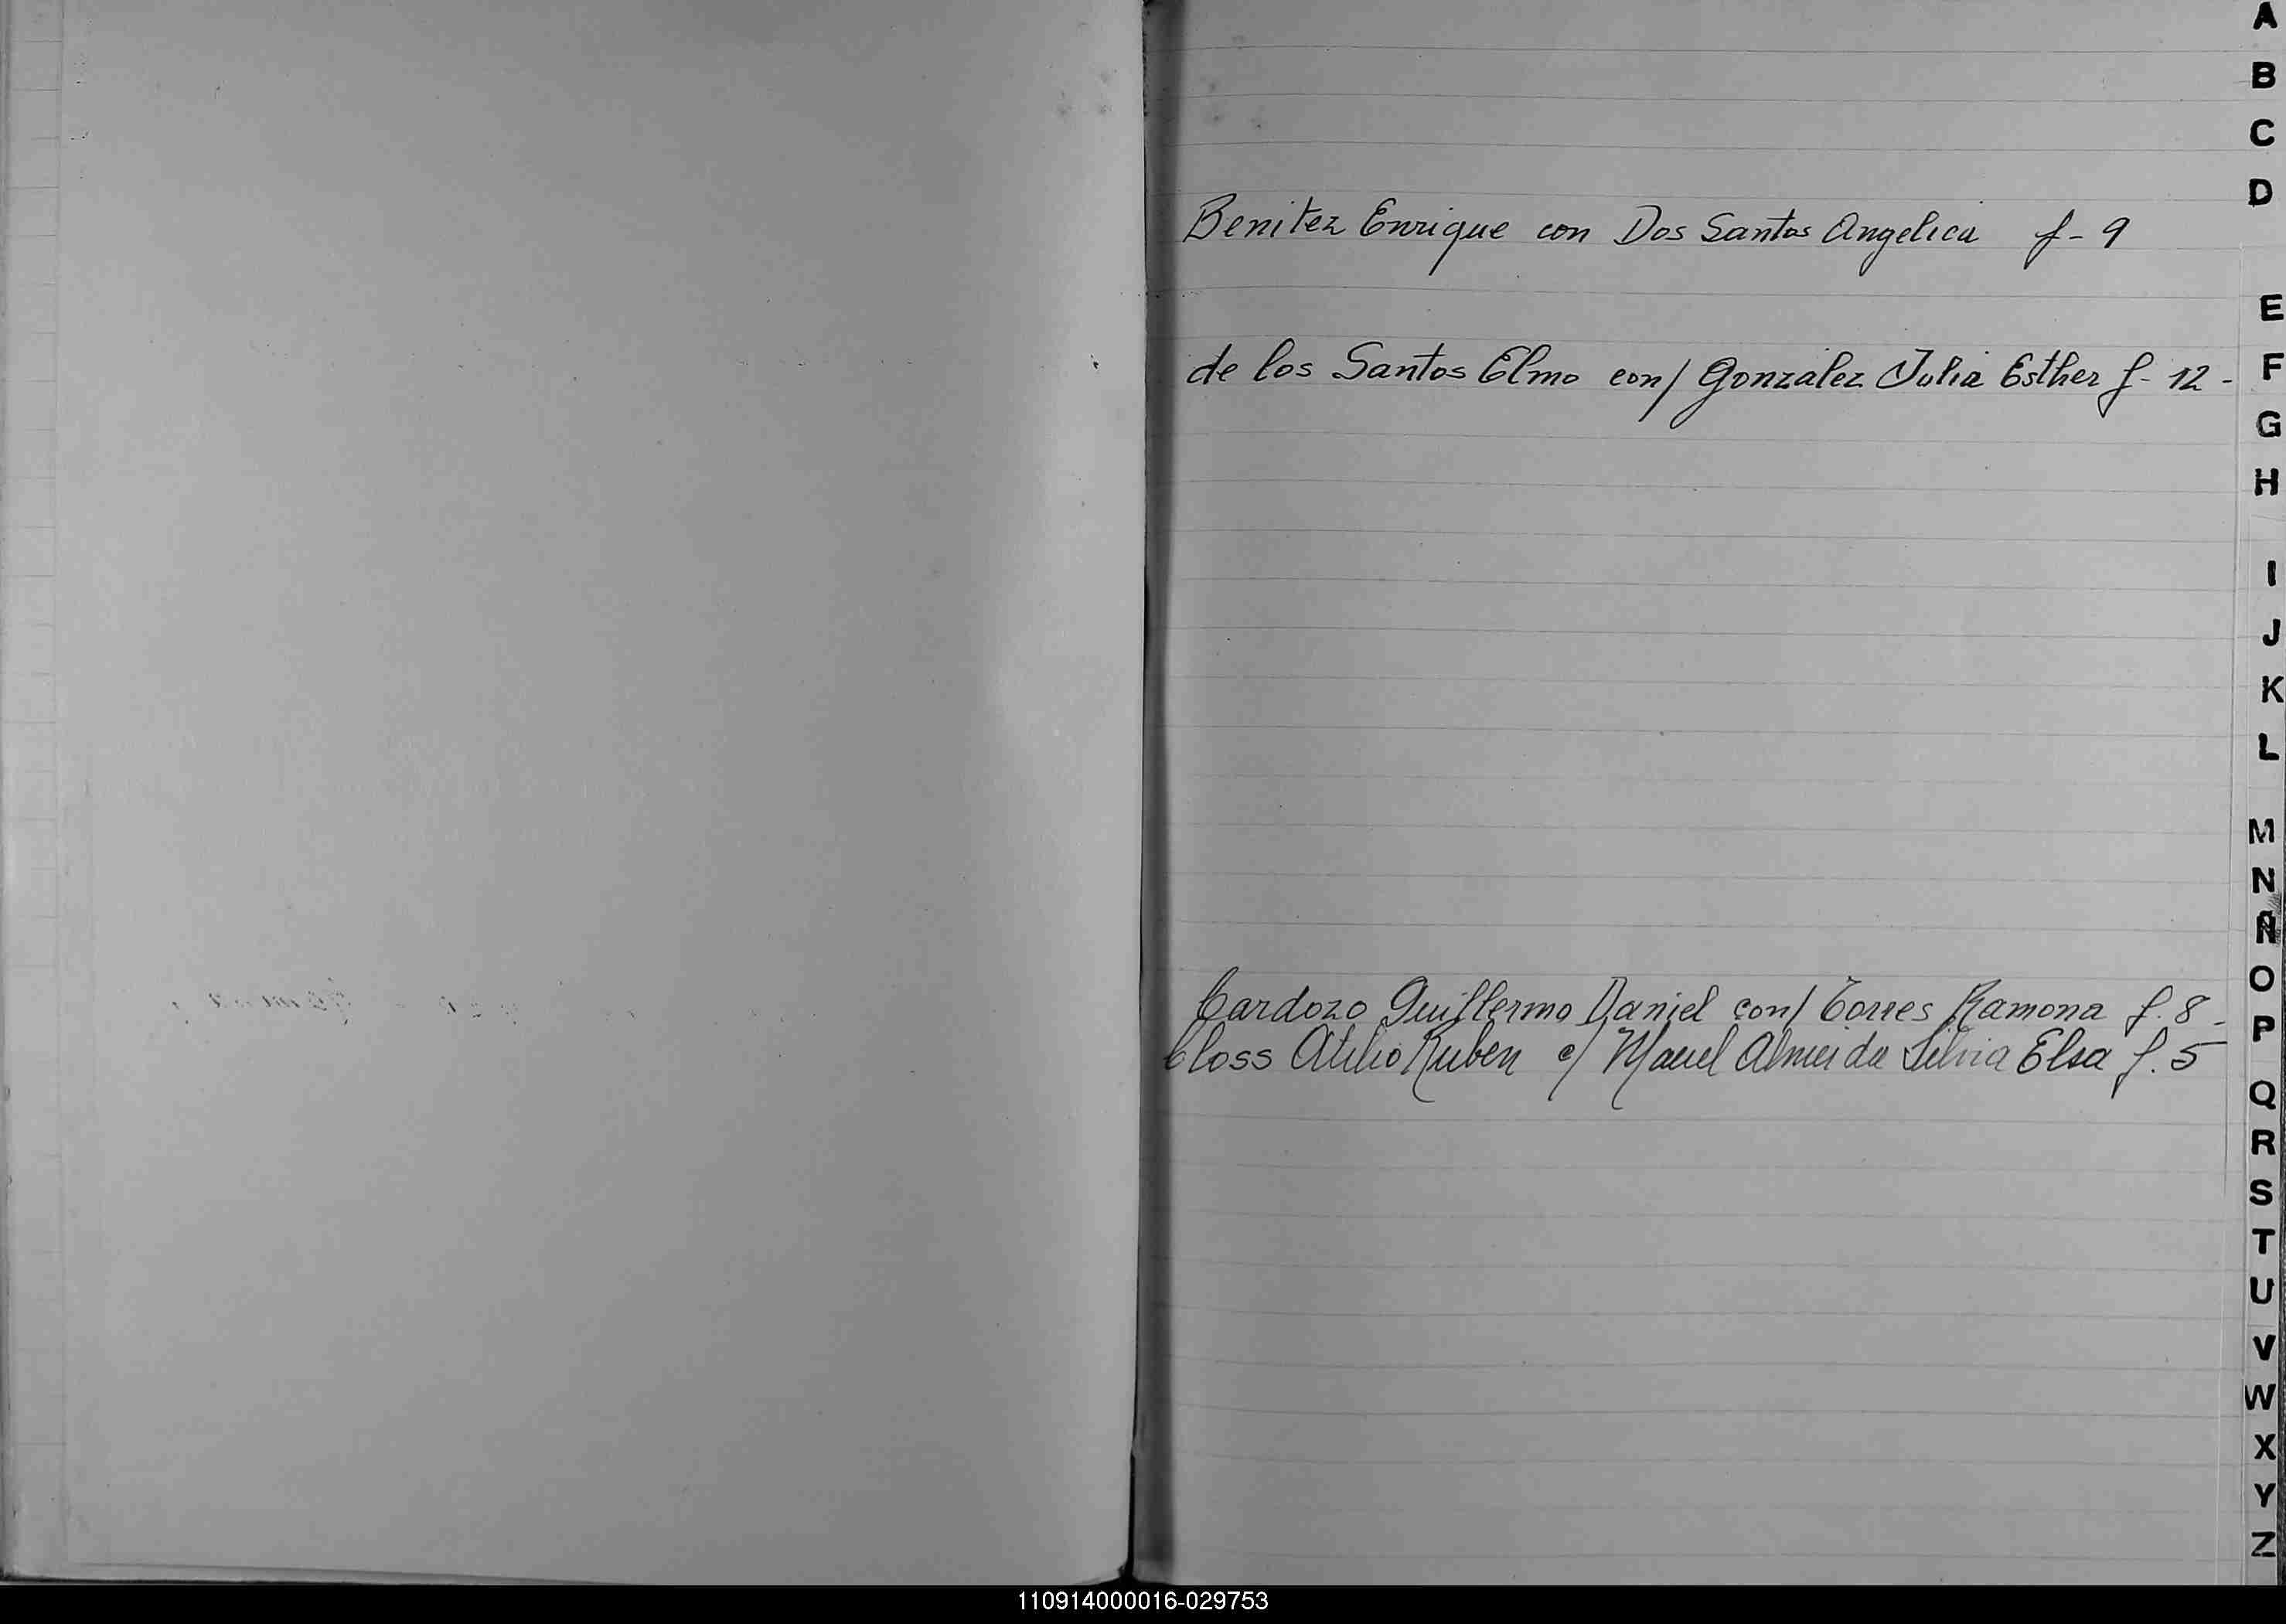 A
B
C
D
Benitez Enrique con Dos Santos Angelica f- 9
E
de los Santos Elmo con/ Gonzalez Julia Esther f- 12 -
F
G
H
I
J
K
L
M
N
Ñ
O
Cardozo Guillermo Daniel con/ Torres Ramona f. 8 -
P
Closs Atilio Ruben c/ Maciel Almeida Silvia Elsa f. 5
Q
R
S
T
U
V
W
X
Y
Z
110914000016-029753